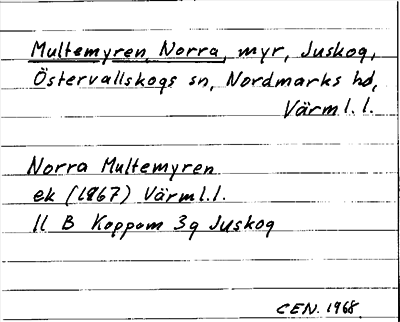 Multemyren, Norra, myr, Juskog,
Östervallskogs sn, Nordmarks hd,
Värml. l.
Norra Multemyren
ek (1967) Värml.l.
11 B Koppom 3g Juskog
CEN. 1968.